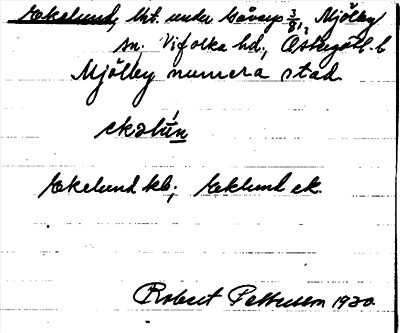 Ekelund, lht. under Gåvsep 3/8, Mjölby
sn. Vifolka hd., Östergötl. l.
Mjölby numera stad
ekalún
Ekelund kb; Eklund ek.
Robert Pettersson 1930